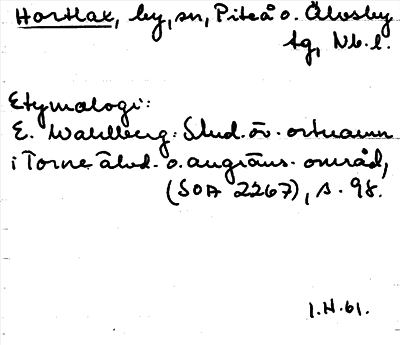 Hortlax, by, sn, Piteå o. Älvsby
tg, Nb. l.
Etymologi:
E. Wahlberg: Stud. öv. ortnamn
i Torne älvd. o. angräns. område,
(SOA 2267), s. 98.
1.H.61.